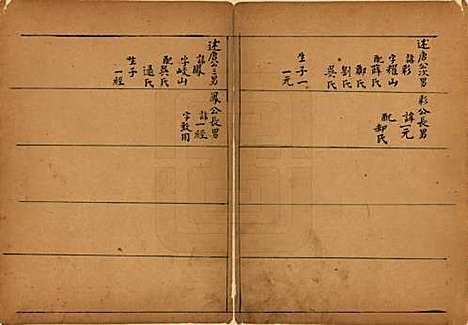 述唐公次男
諱彩
字耀山
配薛氏
鄭氏
劉氏
吳氏
生子一
一元
彩公長男
諱一元
配郝氏
述唐公三男
諱鳳
字岐山
配吳氏
逯氏
生子
一經
鳳公長男
諱一經
字致用